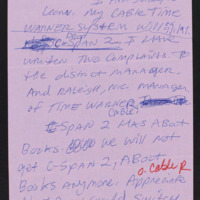 Conn. my CABLE Time
WARNER SYSTEM will
C-SPAN 2, I have
written Two Complaints To
the district manager,
And RAleigh, N.C. manager
of TIME WARNER
CABLE!
C-SPAN 2 HAS ABOUT
BOOKS. We will not
get C-SPAN 2, ABout
BOOKS Anymore. Appreciate
a. Cable R